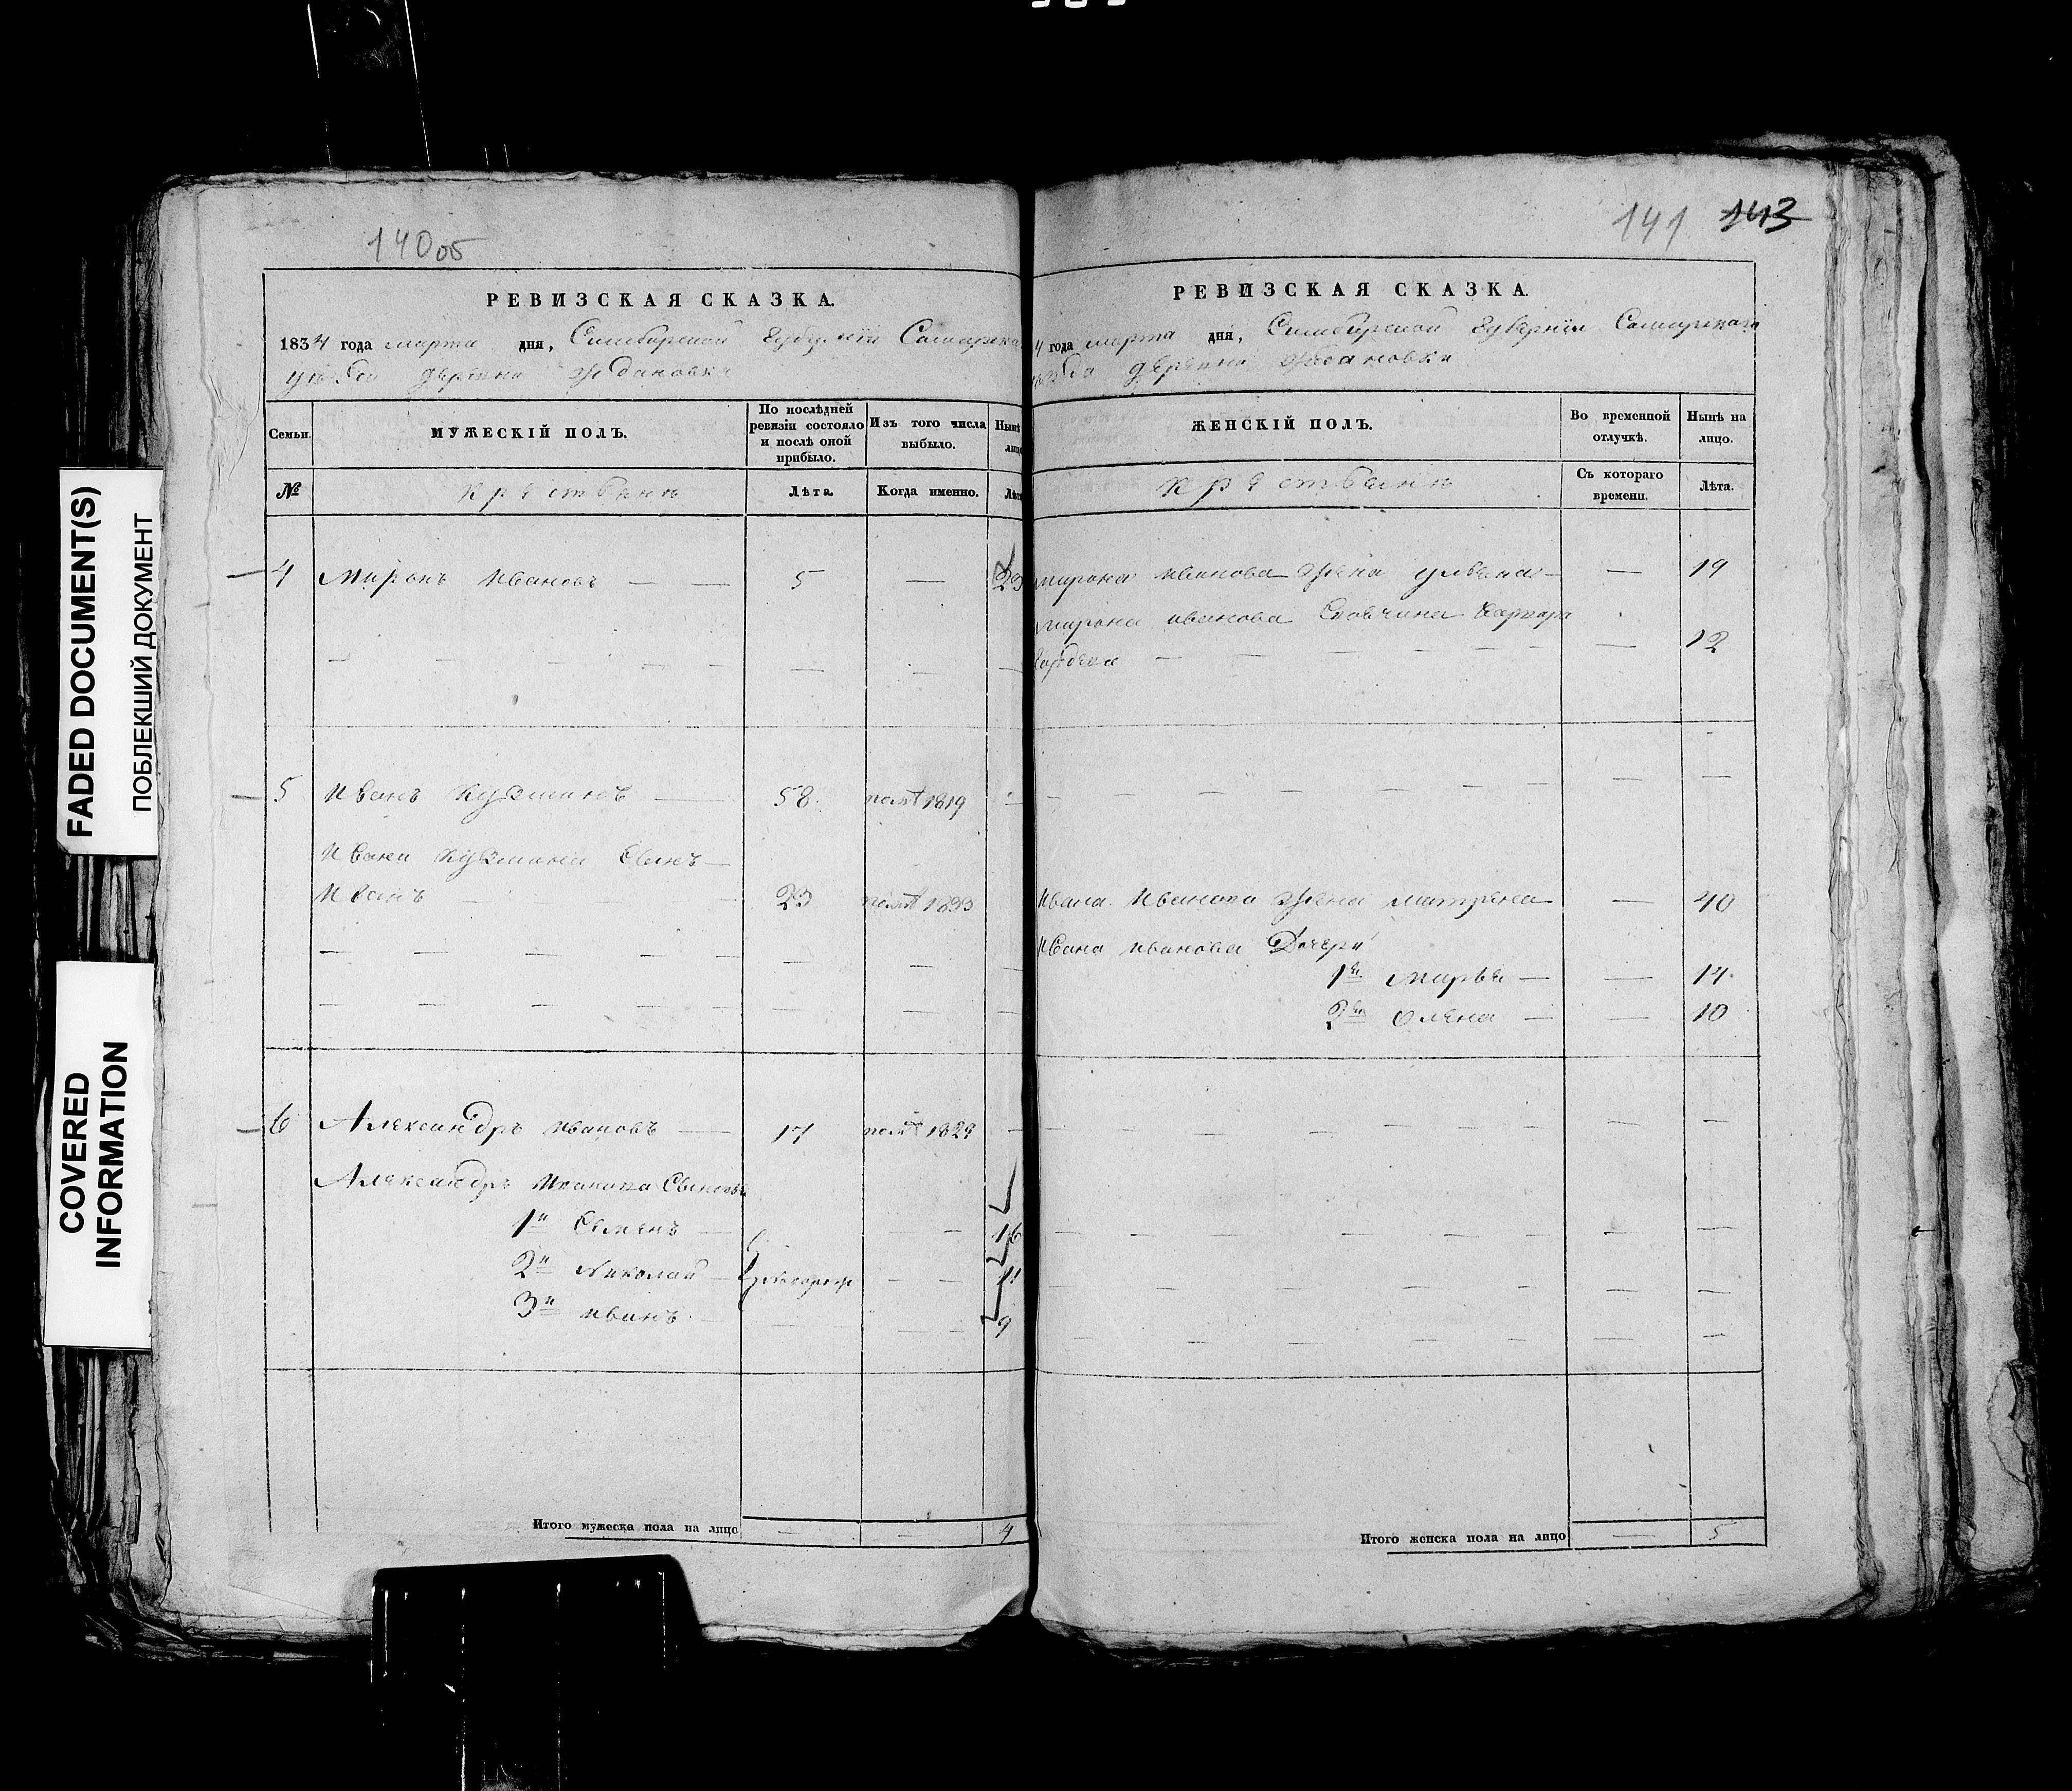 140об
РЕВИЗСКАЯ СКАЗКА.
1834 года марта дня, Симбирской губернiи Самарска
уѣзда деревни Ждановки
Семьи.
МУЖЕСКIЙ ПОЛЪ.
По послѣдней ревизiи состояло и послѣ оной прибыло.
Изъ того числа выбыло.
Нынѣ лицо
№
крестьяне
Лѣта.
Когда именно.
Лѣта
4 Миронъ Ивановъ — — 5 — 23
5 Иванъ Кузминъ — 58. помѣ 1819
Ивана Кузмина сынъ —
Иванъ — — 23 1833
6 Александръ Ивановъ — 17 1829
Александръ Иванова сыновья
1й Семенъ — — 16
2й Николай — — — 11
3й Иванъ — — — 9
Итого мужеска пола на лицо — — 4
141 143
РЕВИЗСКАЯ СКАЗКА.
4 года марта дня, Симбирской губернiи Самарскаго
уѣзда деревни Ждановки
ЖЕНСКIЙ ПОЛЪ.
Во временной отлучкѣ.
Нынѣ на лицо.
крестьяне
Съ котораго времени.
Лѣта.
Мирона Иванова жена Ульяна — — 19
Мирона Иванова
— 12
Ивана Иванова жена Матрена — — 40
Ивана Иванова дочери
1я Марья — — 14.
2я Олена — — 10
Итого женска пола на лицо — 5
FADED DOCUMENT(S)
ПОБЛЕКШИЙ ДОКУМЕНТ
COVERED
INFORMATION